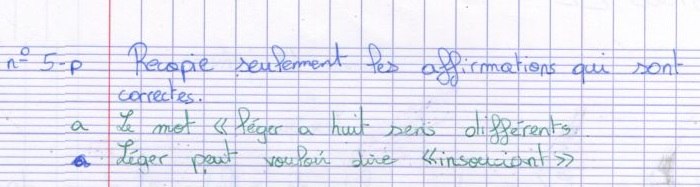 n° 5-p Recopie seulement les affirmations qui sont
correctes.
a Le mot « léger a huit sens différents.
a Léger peut vouloir dire «insouciant»